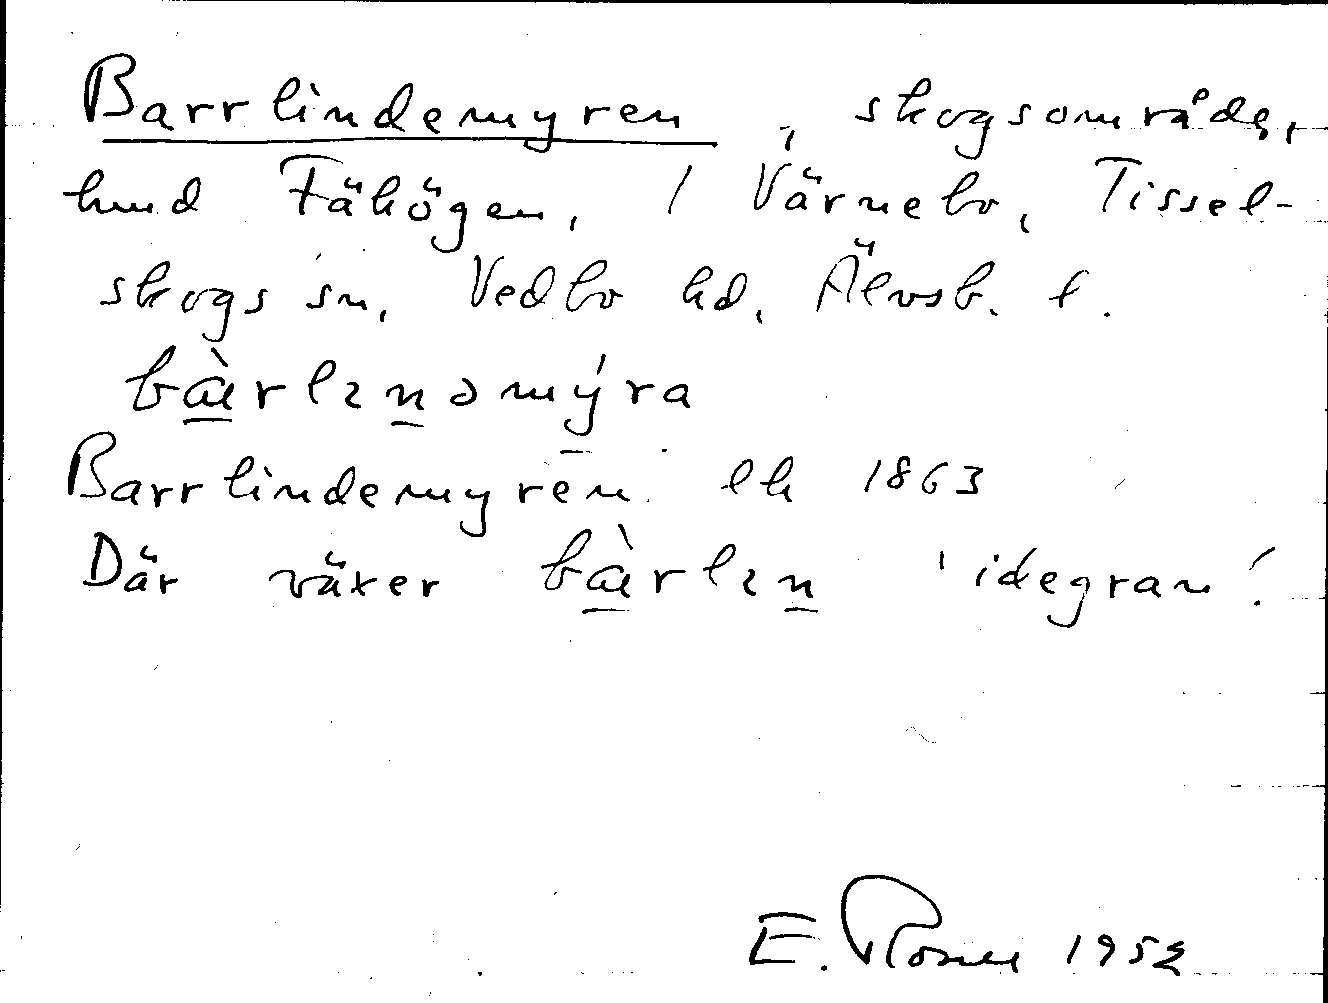 Barrlindemyren, skogsområde,
hmd Fähögen, 1 Värnebo, Tissel-
skogs sn, Vedbo hd, Älvsb. l.
bæ̀rlınəmýra
Barrlindemyren ek 1863
Där växer bæ̀rlın 'idegran'.
E. Rosell 1952